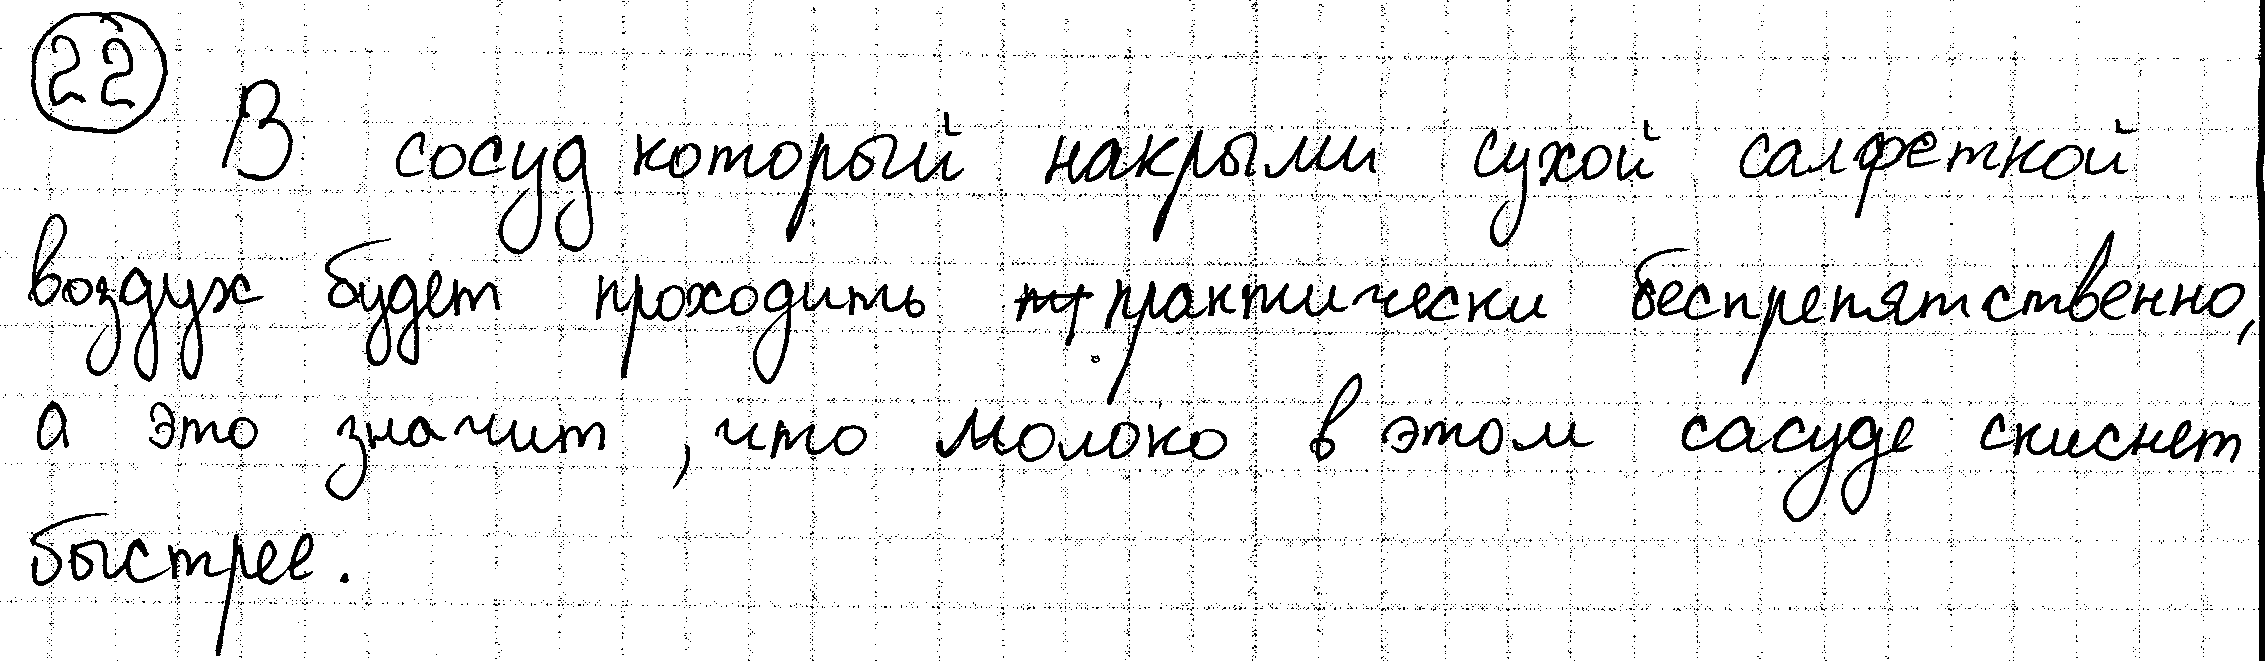 22
В сосуд который накрыли сухой салфеткой
воздух будет проходить практически беспрепятственно,
а это значит, что молоко в этом сасуде скиснет
быстрее.